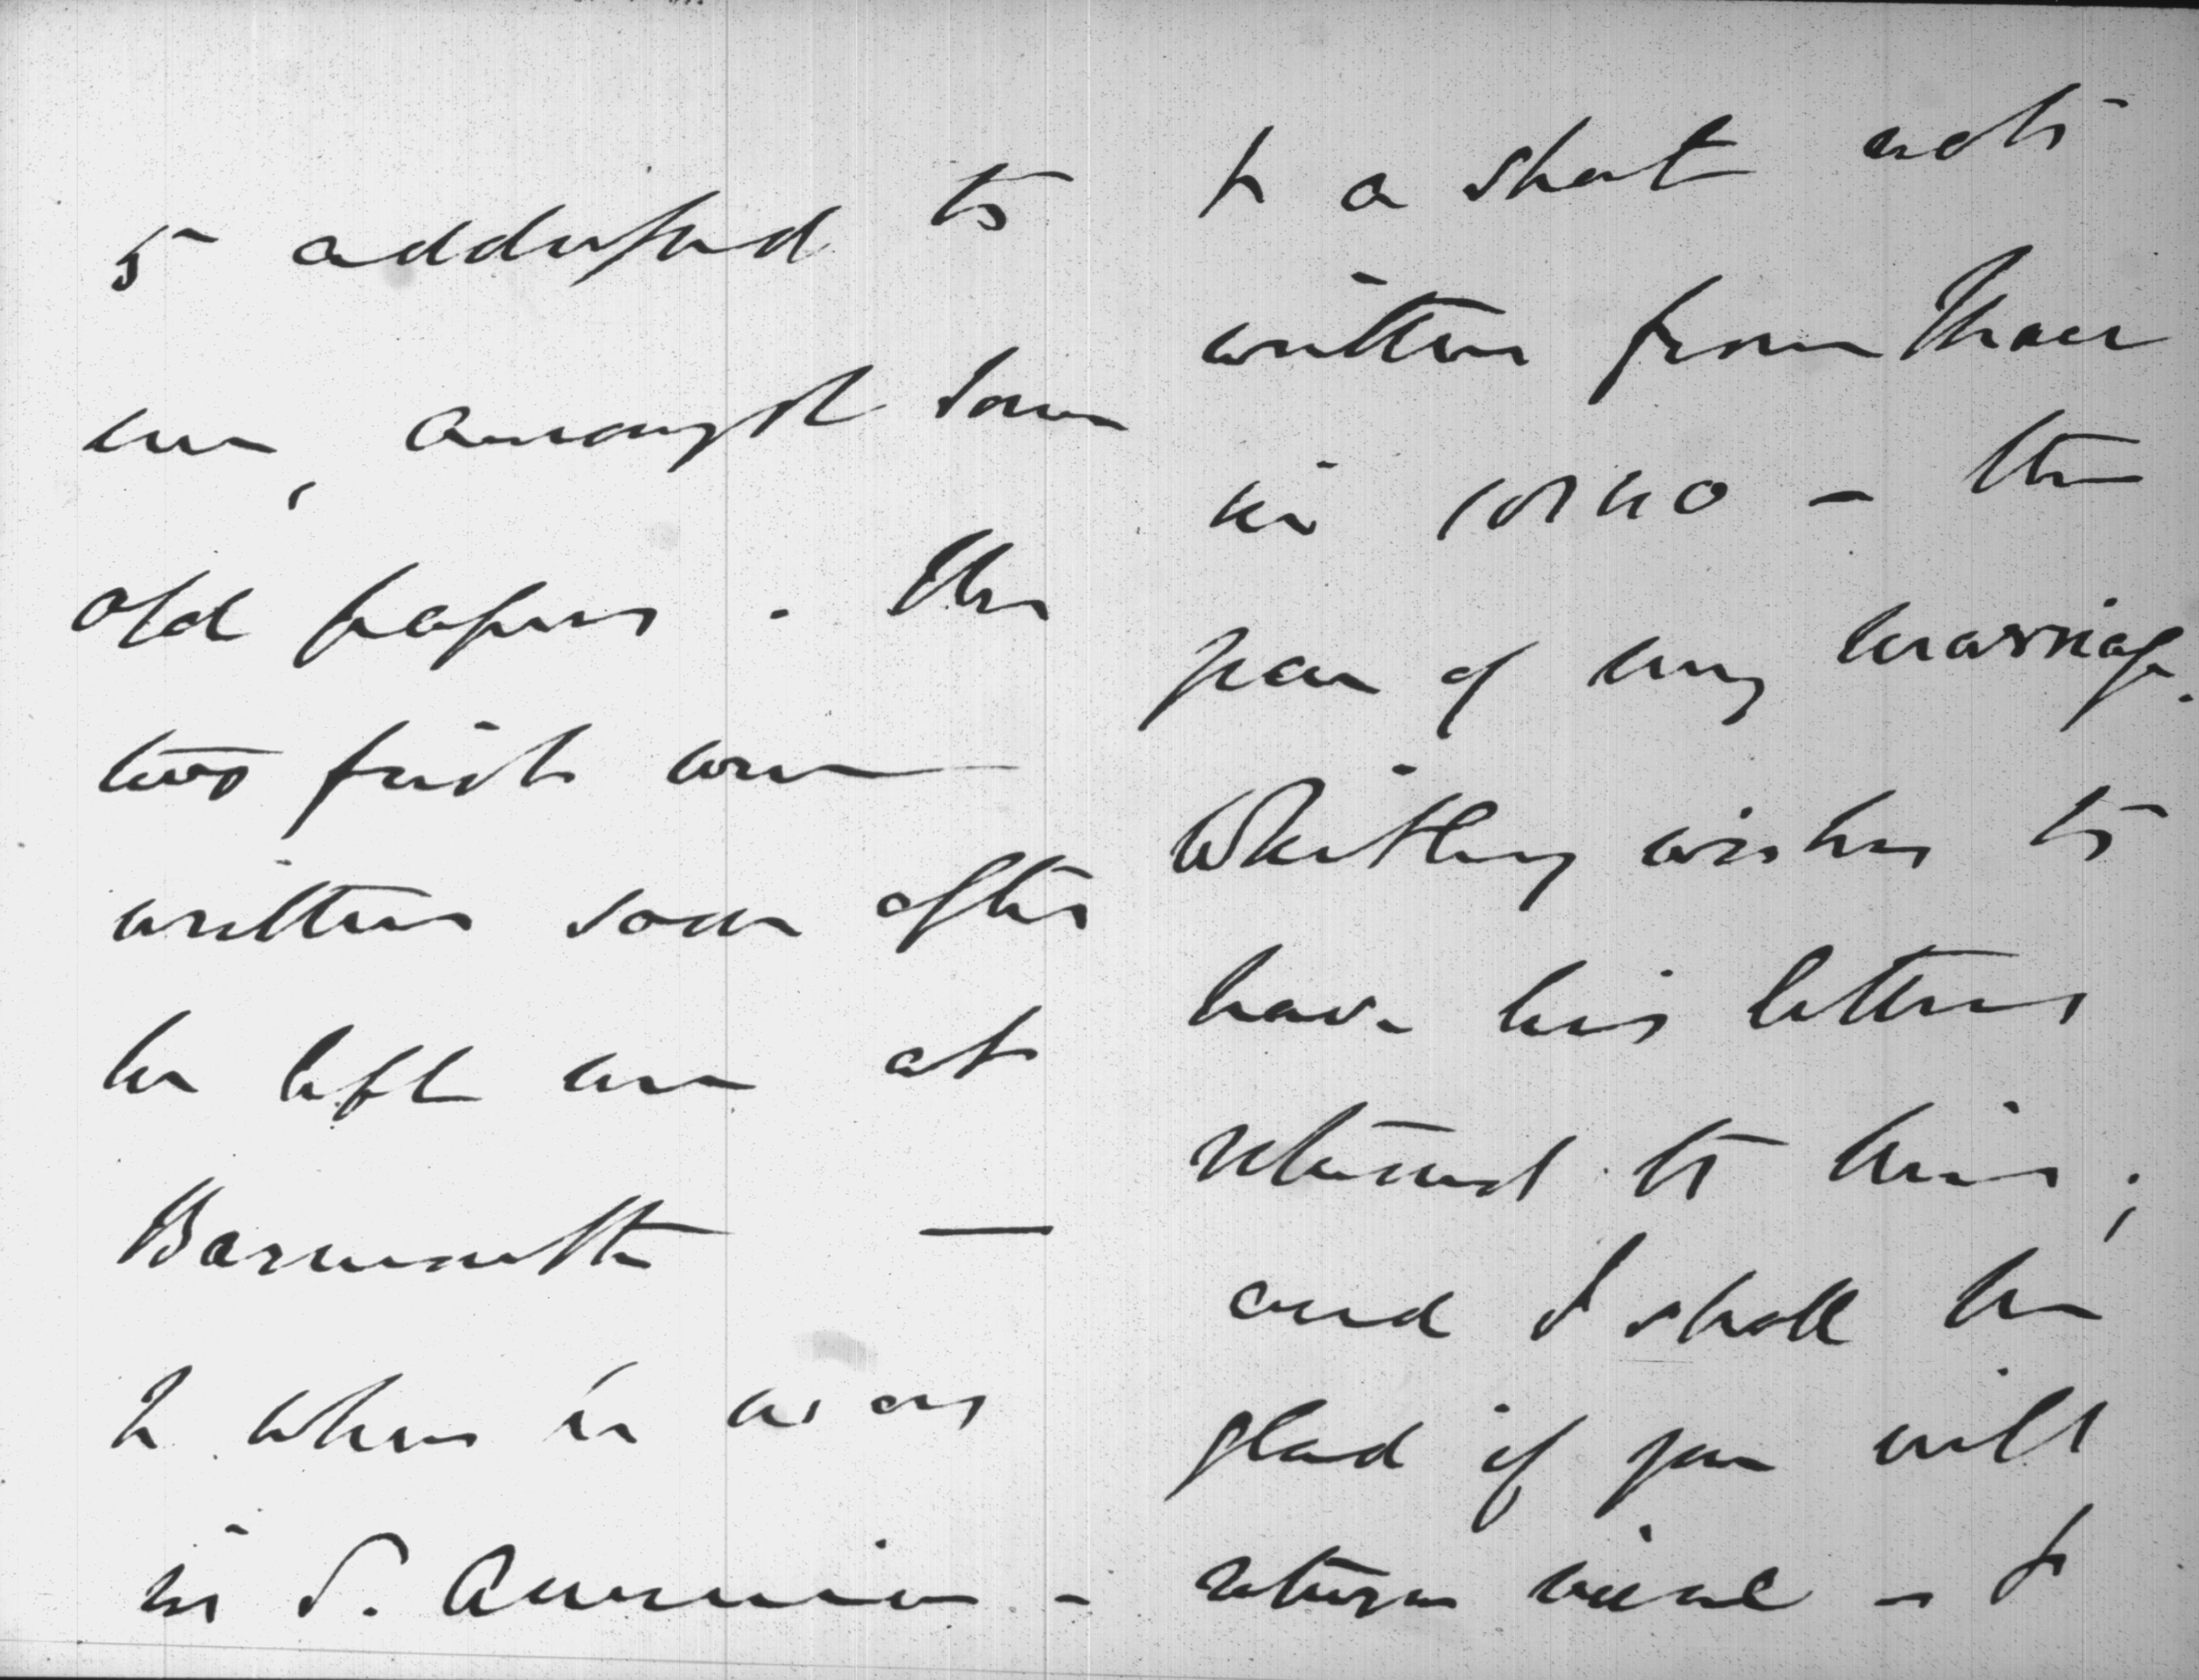 5 addressed to
me, amongst some
old papers. The
two first were
written soon after
he left me at
Barmouth —
2 when he was
in S. America -
& a short note
written from Maer
in 1840 – the
year of my marriage.
Whitley wishes to
have his letters
returned to him;
and I shall be
glad if you will
return mine - &